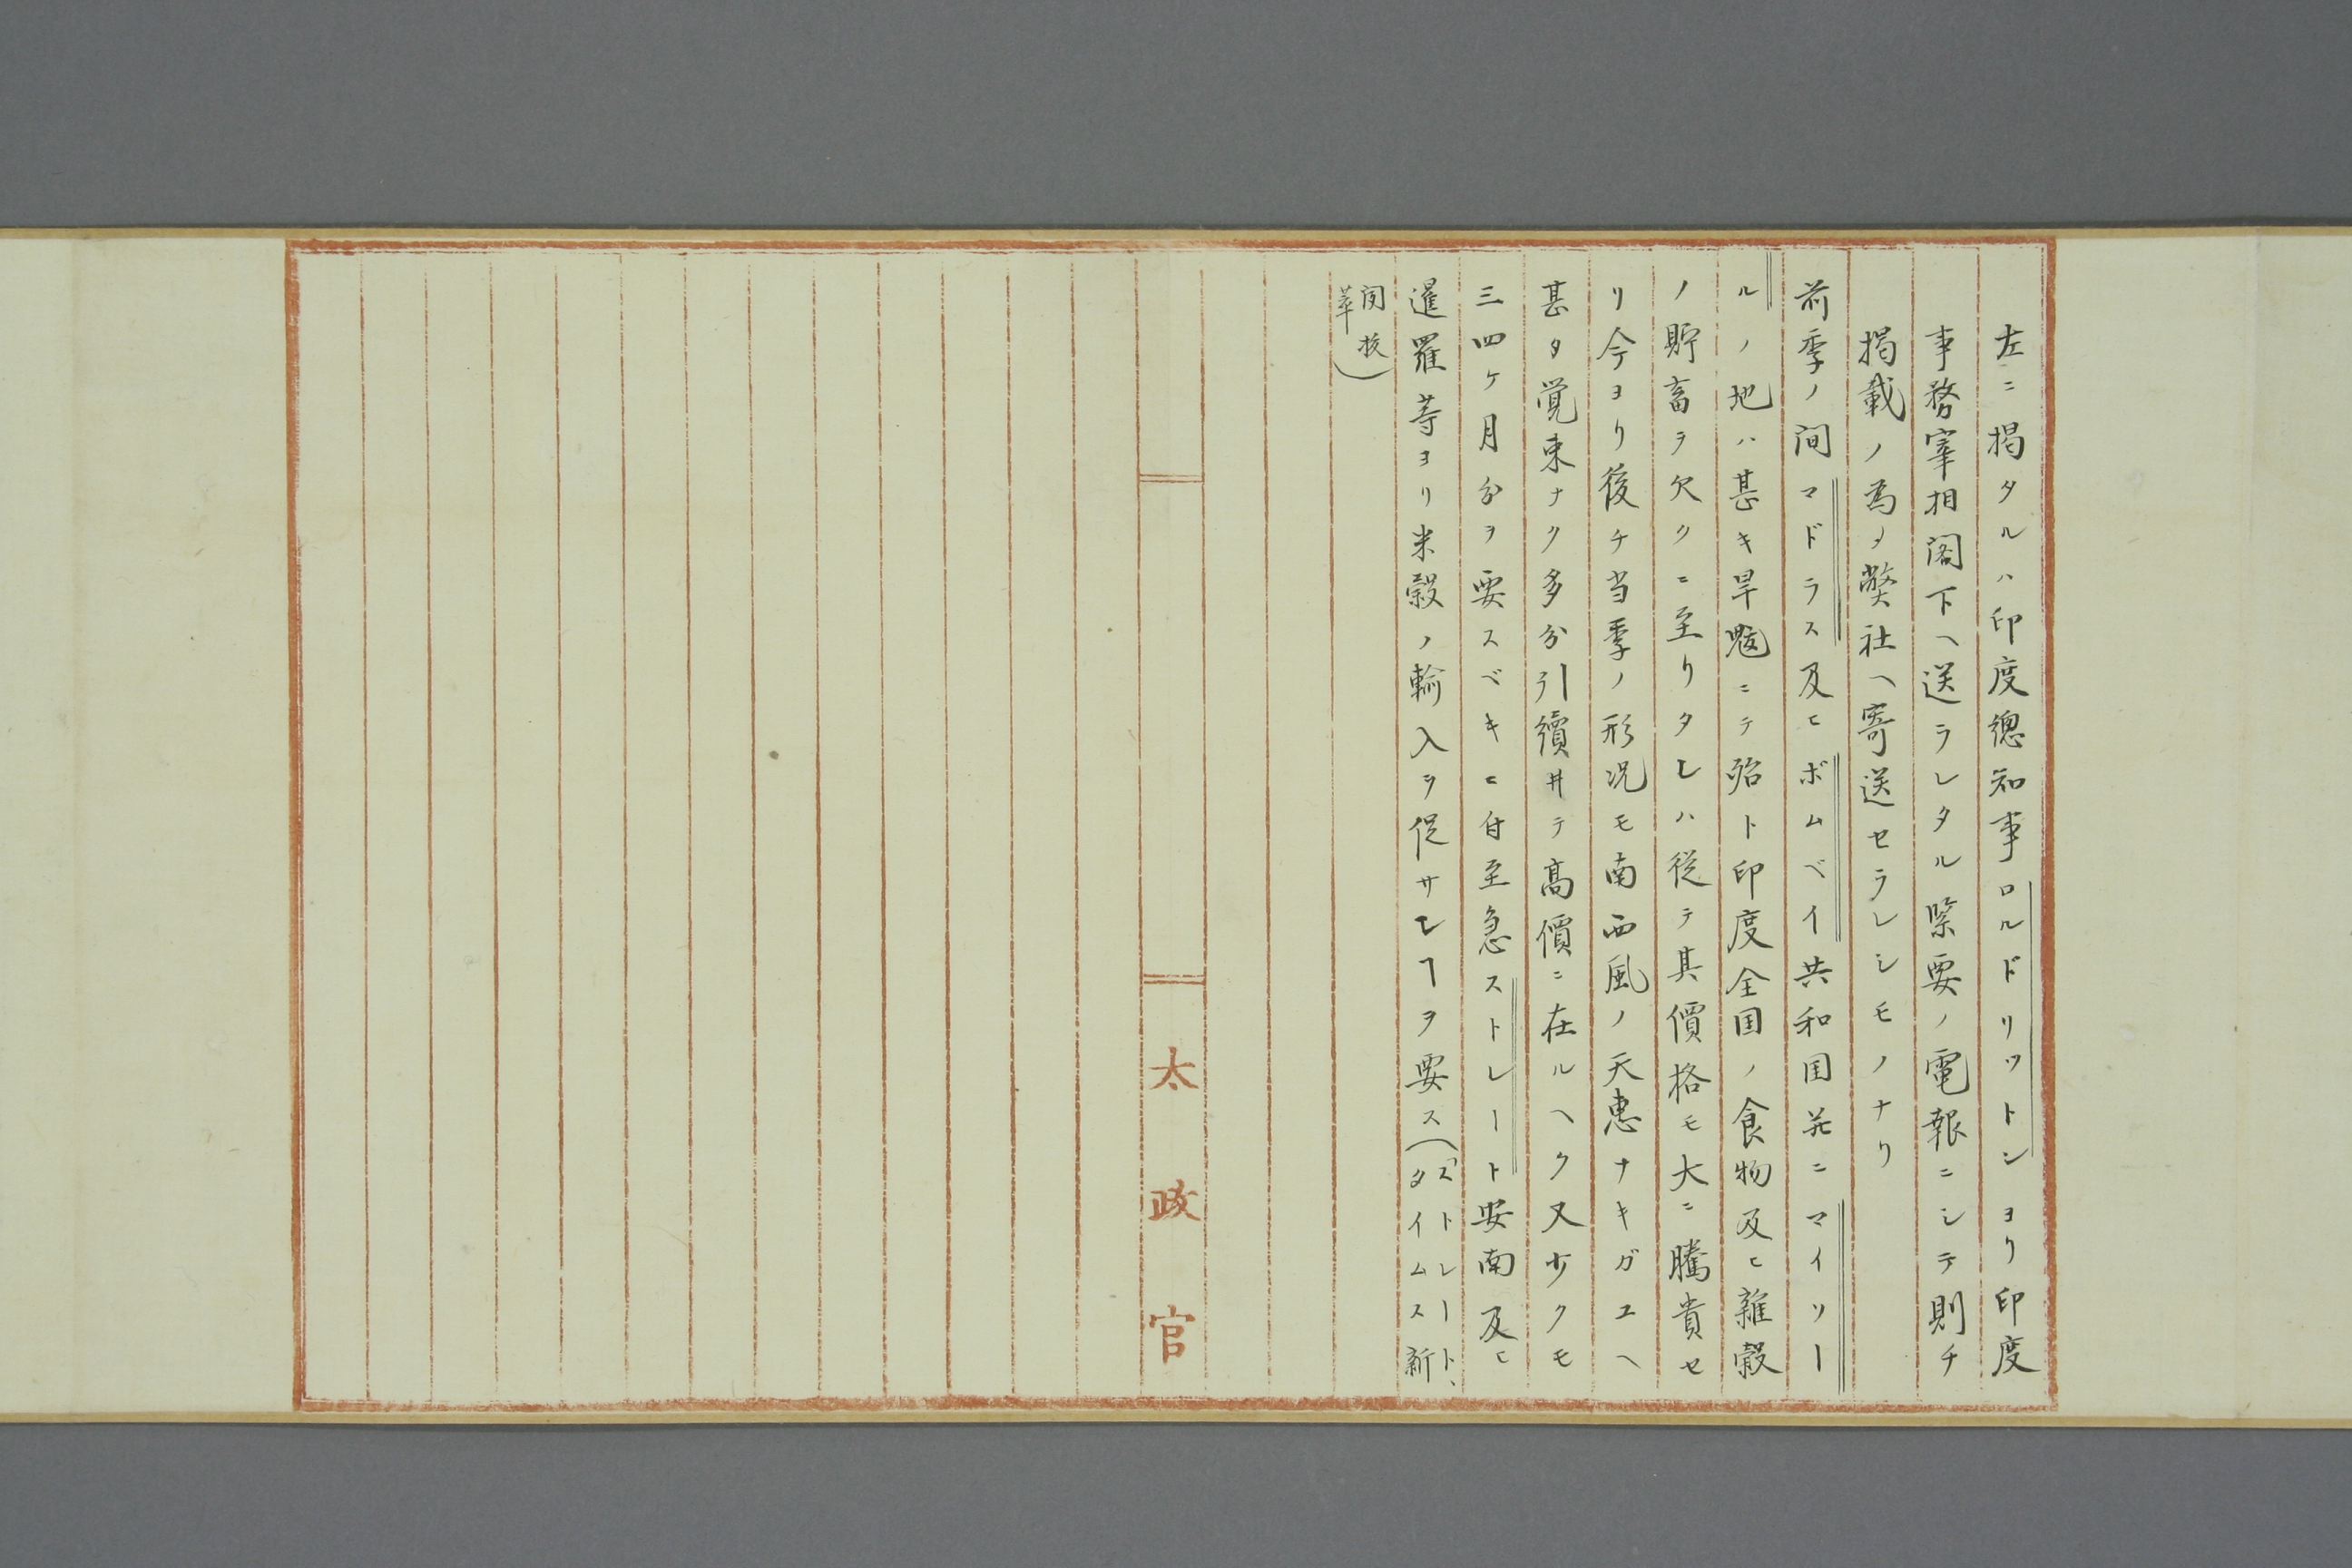 左ニ掲タルハ印度總知事ロルドリットンヨリ印度
事務宰相閣下ヘ送ラレタル緊要ノ電報ニシテ則チ
掲載ノ為メ弊社ヘ寄送セラレシモノナリ
前季ノ間マドラス及ヒボムベイ共和国并ニマイソー
ルノ地ハ甚キ旱魃ニテ殆ト印度全国ノ食物及ヒ雑穀
ノ貯畜ヲ欠クニ至リタレハ従テ其價格モ大ニ騰貴セ
リ今ヨリ後チ当季ノ形况モ南西風ノ天恵ナキガユヘ
甚タ覚束ナク多分引續井テ高價ニ在ルヘク又少クモ
三四ケ月分ヲ要スベキニ付至急ストレート安南及ヒ
暹羅等ヨリ米穀ノ輸入ヲ促サレヿヲ要ス(「ストレート、
タイムス新
聞抜
萃)
太政官